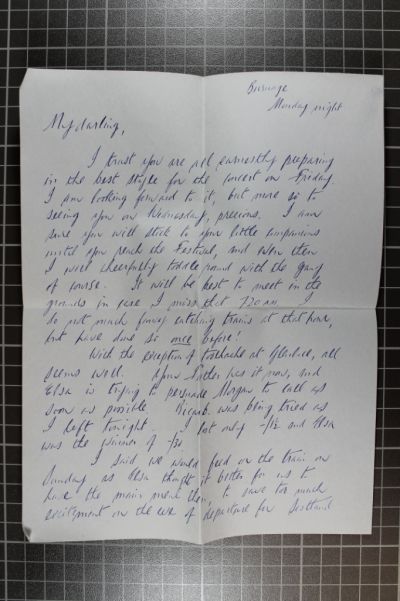 Burnage
Monday night
My darling,
I trust you are all earnestly preparing
in the best style for the concert on Friday.
I am looking forward to it, but more so to
seeing you on Wednesday, precious. I am
sure you will stick to your little companions
until you reach the Festival, and even then
I will cheerfully toddle round with the gang
of course. It will be best to meet in the
grounds in case I miss that 7.20 am. I
do not much fancy catching trains at that hour,
but have done so once before!
With the exception of toothache at , all
seems well. Your has it now, and
Elsa is trying to persuade Morgan to call as
soon as possible. was being tried as
I left tonight. I lost only -/2 and Elsa
was the winner of
I said we would feed on the train on
Sunday as Elsa thought it better for us to
have the main meal then, to save too much
excitement on the eve of departure for Scotland